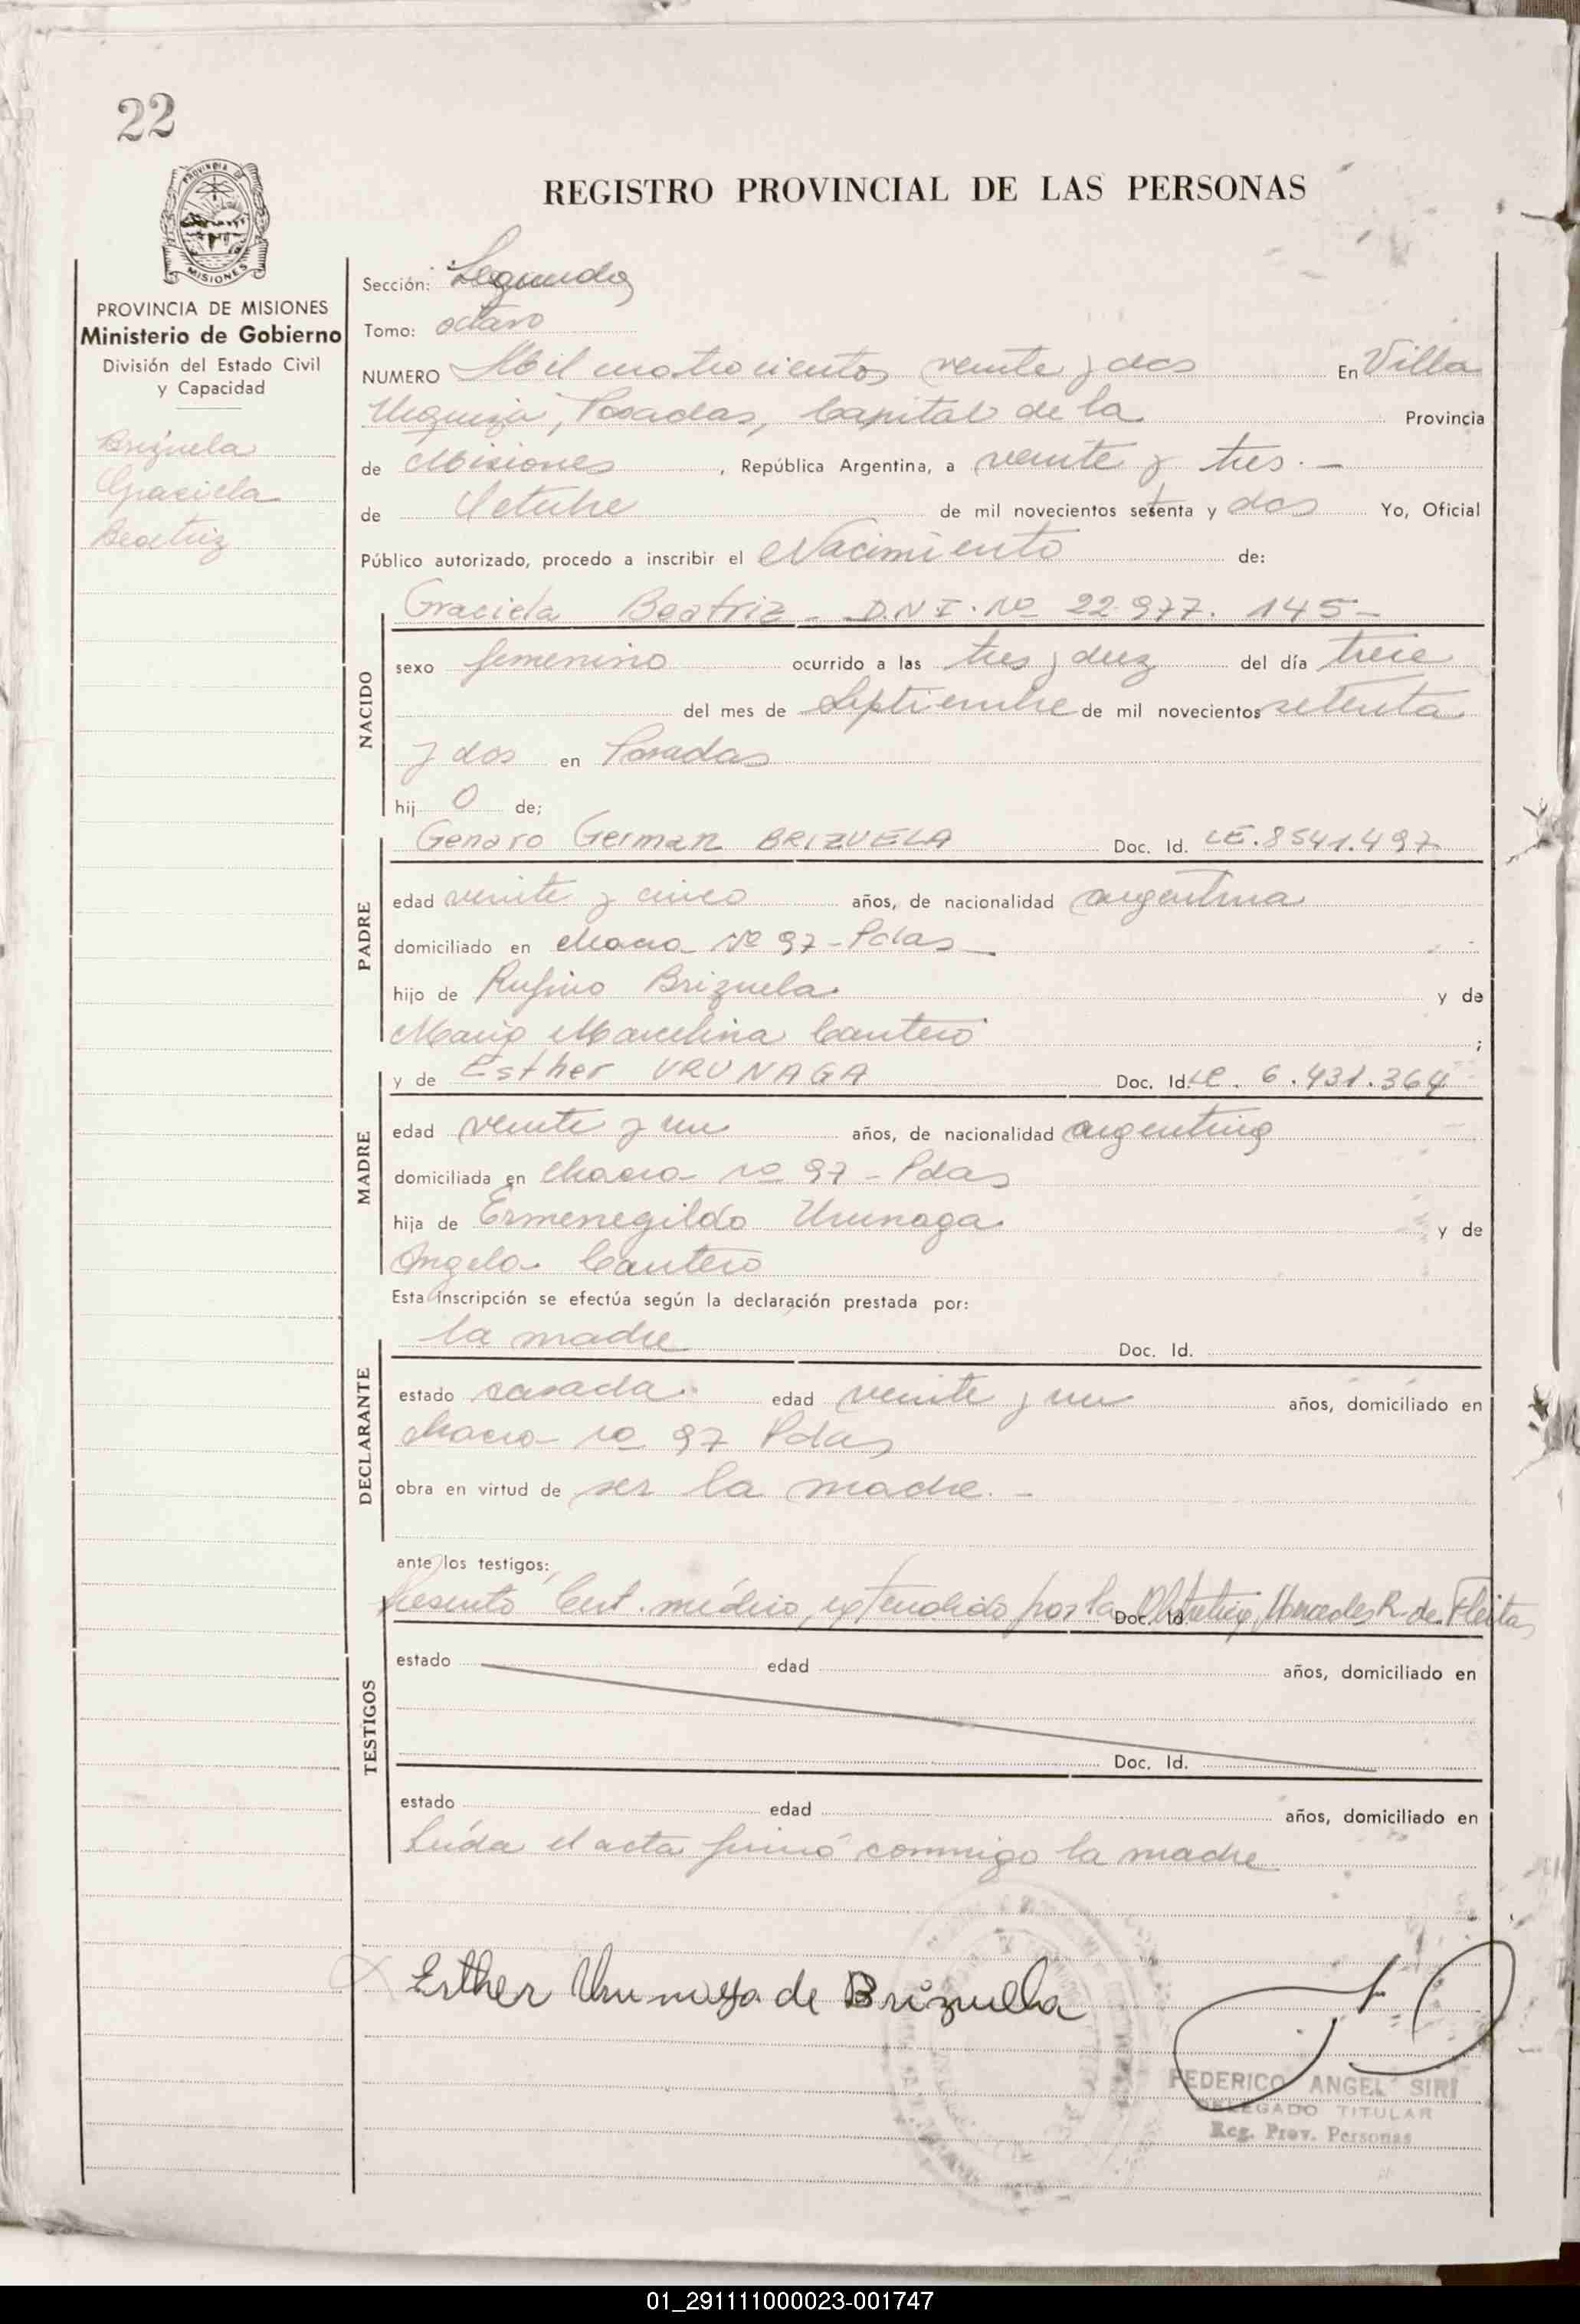 22
PROVINCIA DE
MISIONES
PROVINCIA DE MISIONES
Ministerio de Gobierno
División del Estado Civil
y Capacidad
Brizuela
Graciela
Beatriz
REGISTRO PROVINCIAL DE LAS PERSONAS
Sección: Segunda
Tomo: octavo
NUMERO Mil cuatrocientos veinte y dos En Villa
Urquiza, Posadas, Capital de la Provincia
de Misiones, República Argentina, a veinte y tres.-
de Octubre de mil novecientos setenta y dos Yo, Oficial
Público autorizado, procedo a inscribir el Nacimiento de:
NACIDO
Graciela Beatriz - D.N.I. No 22.977.145-
sexo femenino ocurrido a las tres y diez del día trece
del mes de Septiembre de mil novecientos setenta
y dos en Posadas
hij o de;
PADRE
Genaro German BRIZUELA Doc. Id. LE.8541.497
edad veinte y cinco años, de nacionalidad argentina
domiciliado en chacra No 97-Pdas
hijo de Rufino Brizuela y de
Maria Marcelina Cantero ;
MADRE
y de Esther URUNAGA Doc. Id. LC. 6.431.364
edad veinte y un años, de nacionalidad argentina
domiciliada en chacra no 97-Pdas
hija de Ermenegildo Urunaga y de
Angela Cantero
Esta inscripción se efectúa según la declaración prestada por:
DECLARANTE
la madre Doc. Id.
estado casada. edad veinte y un años, domiciliado en
chacra no 97 Pdas
obra en virtud de ser la madre.-
ante los testigos:
TESTIGOS
Presentó Cert. médico, extendido por la Obstetriz, Mercedes R. de Fleitas Doc. Id.
estado edad años, domiciliado en
Doc. Id.
estado edad años, domiciliado en
Leída el acta firmó conmigo la madre
Esther Urunaga de Brizuella
FEDERICO ANGEL SIRI
DELEGADO TITULAR
Reg. Prov. Personas
01_291111000023-001747